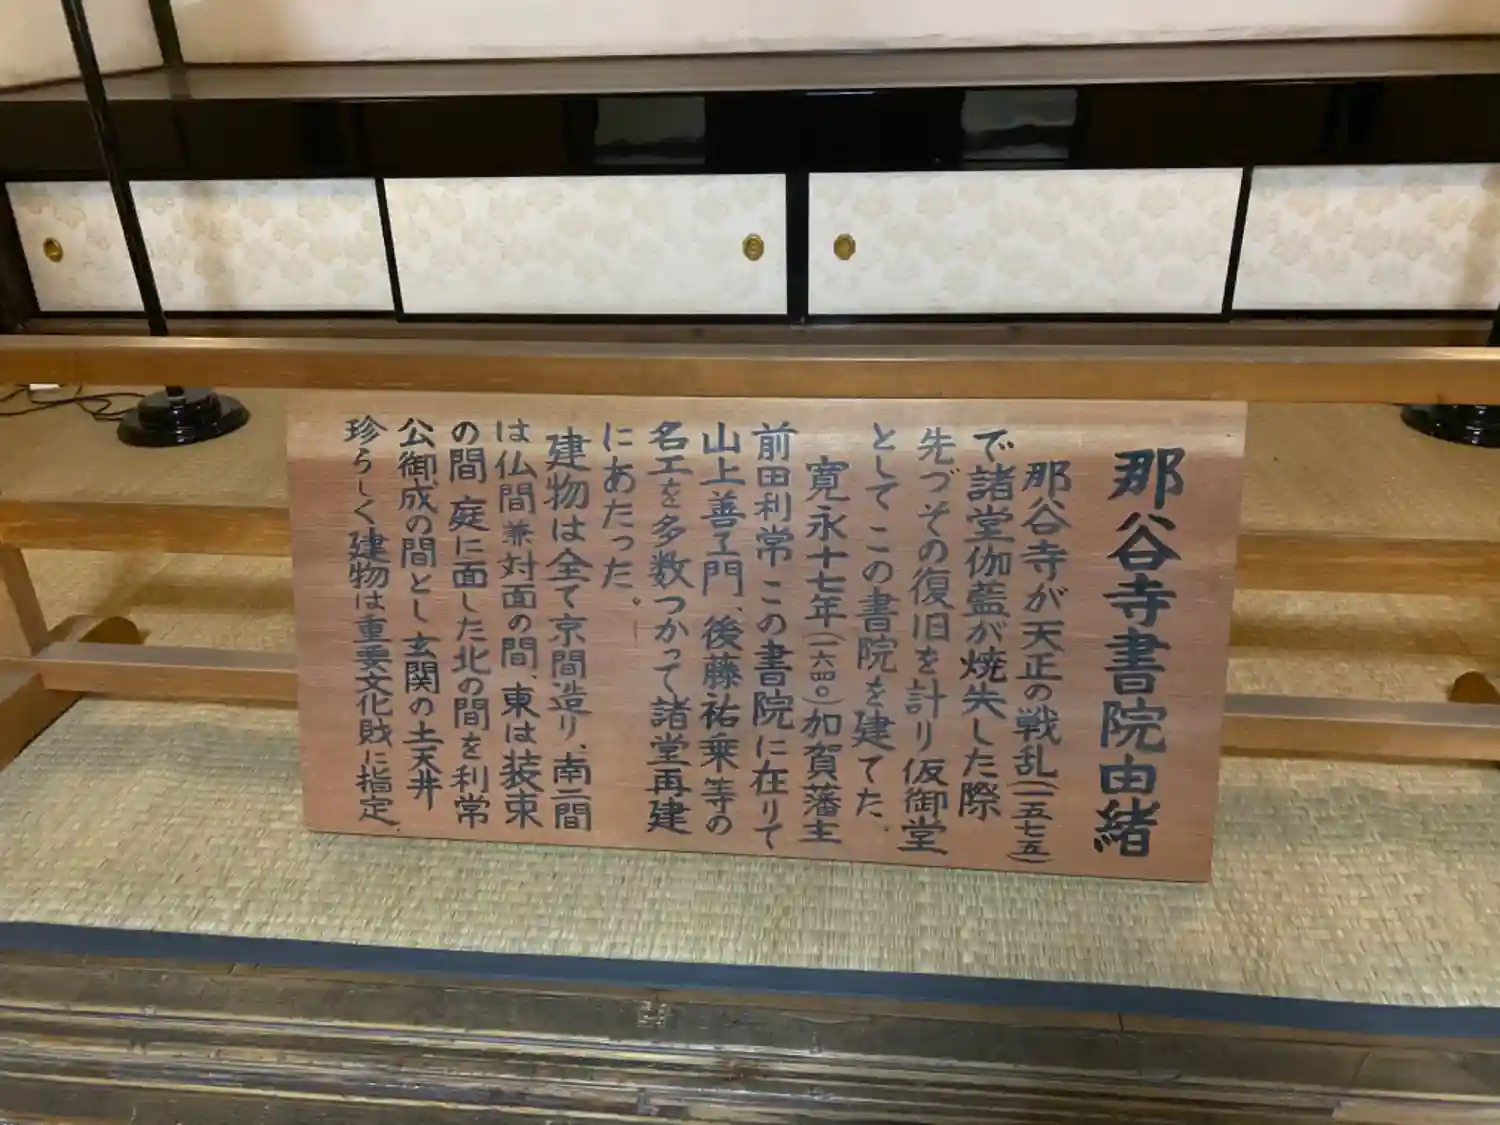 那谷寺書院由緒
那谷寺が天正の戦乱(一五七五)
で諸堂伽藍が焼失した際
先づその復旧を計り仮御堂
としてこの書院を建てた.
寛永十七年(一六四〇)加賀藩主
前田利常この書院に在りて
山上善了門、後藤祐乗等の
名工を多数つかって諸堂再建
にあたった。
建物は全て京間造り、南二間
は仏間兼対面の間、東は装束
の間 庭に面した北の間を利常
公御成の間とし玄関の土天井
珍らしく建物は重要文化財に指定.